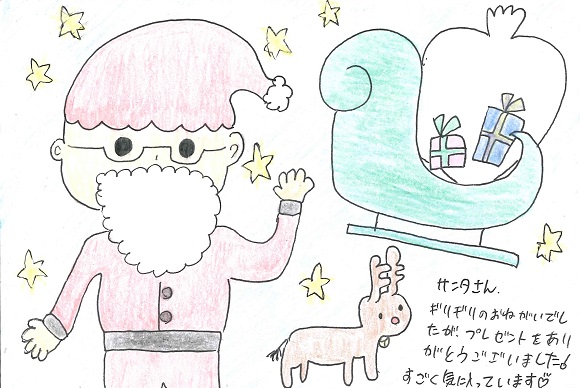 サンタさん.
ギリギリのおねがいでし
たが、プレゼントをあり
がとうございました!
すごく気に入っています♡